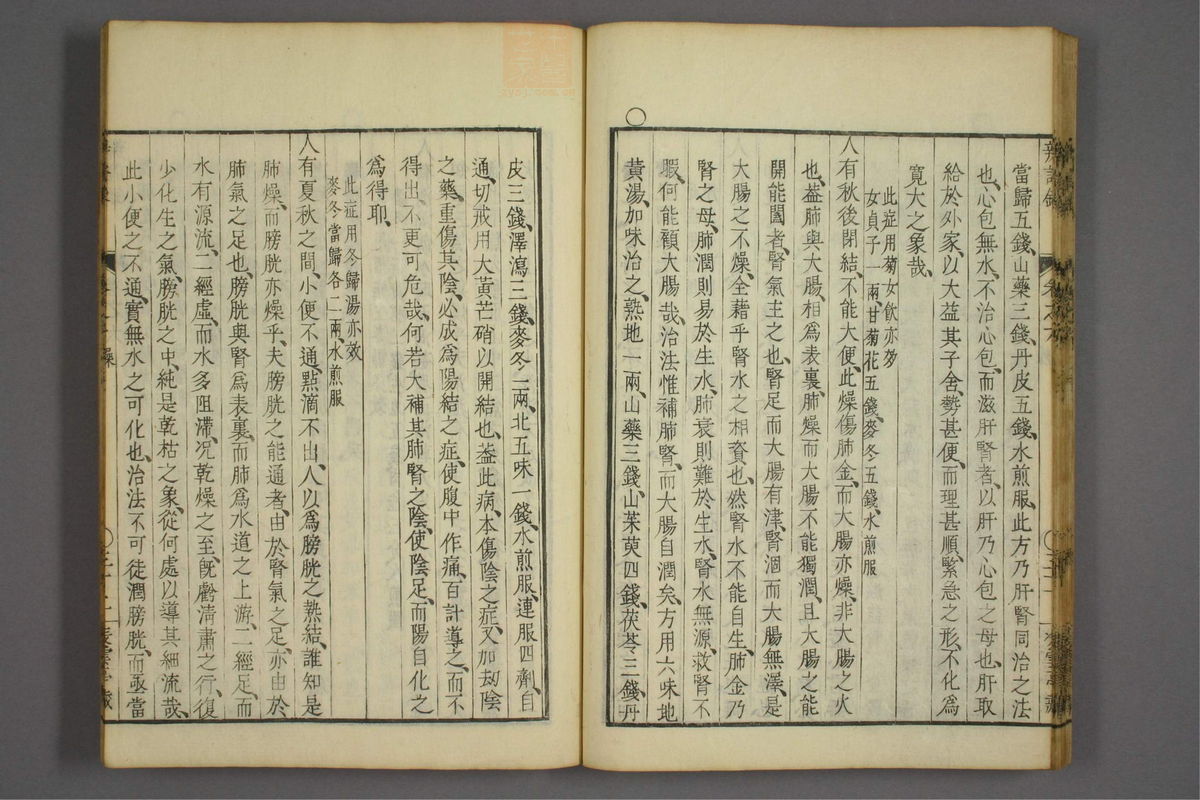 當歸五錢、山藥三錢、丹皮五錢、水煎服、此方乃肝腎同治之法
也、心包無水、不治心包、而滋肝腎者、以肝乃心包之母也、肝取
給於外家、以大益其子舍、勢甚便、而理甚順、緊急之形、不化為
寬大之象哉、
此症用菊女飲亦效
女貞子一兩、甘菊花五錢、麥冬五錢、水煎服
人有秋後閉結、不能大便、此燥傷肺金、而大腸亦燥、非大腸之火
也、蓋肺與大腸、相為表裏、肺燥而大腸不能獨潤、且大腸之能
開能闔者、腎氣主之也、腎足而大腸有津、腎涸而大腸無澤、是
大腸之不燥、全藉乎腎水之相資也、然腎水不能自生、肺金乃
腎之母、肺潤則易於生水、肺衰則難於生水、腎水無源、救腎不
暇、何能顧大腸哉、治法惟補肺腎、而大腸自潤矣、方用六味地
黃湯、加味治之、熟地一兩、山藥三錢、山茱萸四錢、茯苓三錢、丹
皮三錢、澤瀉三錢、麥冬二兩、北五味一錢、水煎服、連服四劑、自
通、切戒用大黃芒硝以開結也、蓋此病、本傷陰之症、又加劫陰
之藥、重傷其陰、必成為陽結之症、使腹中作痛、百計導之、而不
得出、不更可危哉、何若大補其肺腎之陰、使陰足、而陽自化之
為得耶、
此症用冬歸湯亦效
麥冬當歸各二兩、水煎服
人有夏秋之間、小便不通、點滴不出、人以為膀胱之熱結、誰知是
肺燥、而膀胱亦燥乎、夫膀胱之能通者、由於腎氣之足、亦由於
肺氣之足也、膀胱與腎為表裏、而肺為水道之上游、二經足、而
水有源流、二經虛、而水多阻滯、况乾燥之至、既虧清肅之行、復
少化生之氣、膀胱之中、純是乾枯之象、從何處以導其細流哉、
此小便之不通、實無水之可化也、治法不可徒潤膀胱、而亟當